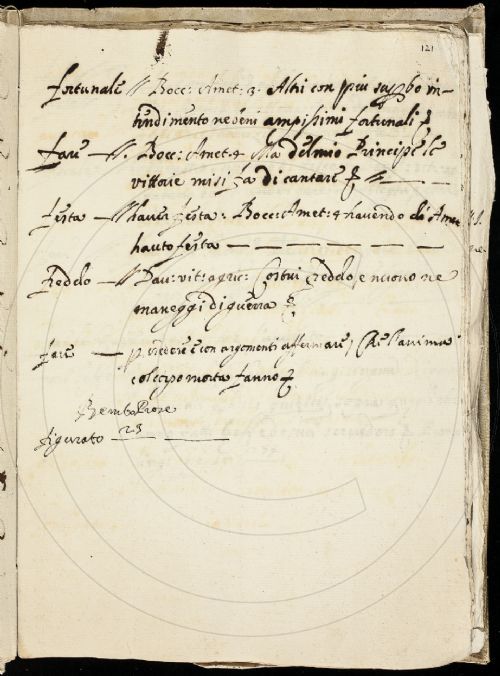 121
fortunale // Bocc: Amet: 3. Altri con piu superbo in-
tendimento ne veni ampissimi fortunali
fare — //. Bocc: Amet: 4 Ma del mio Principe le
vittorie mi si fa di cantare // — —
festa — // haver festa: Bocc: Amet: 4 havendo di
hauto festa — — — — — —
freddo — // Dav: vit: agric: Costui freddo, e nuovo ne
maneggi di guerra
fare — credere e con argomenti affermare, Che l'anima
col corpo morta fanno
Bembo Prose
figurato 23 —